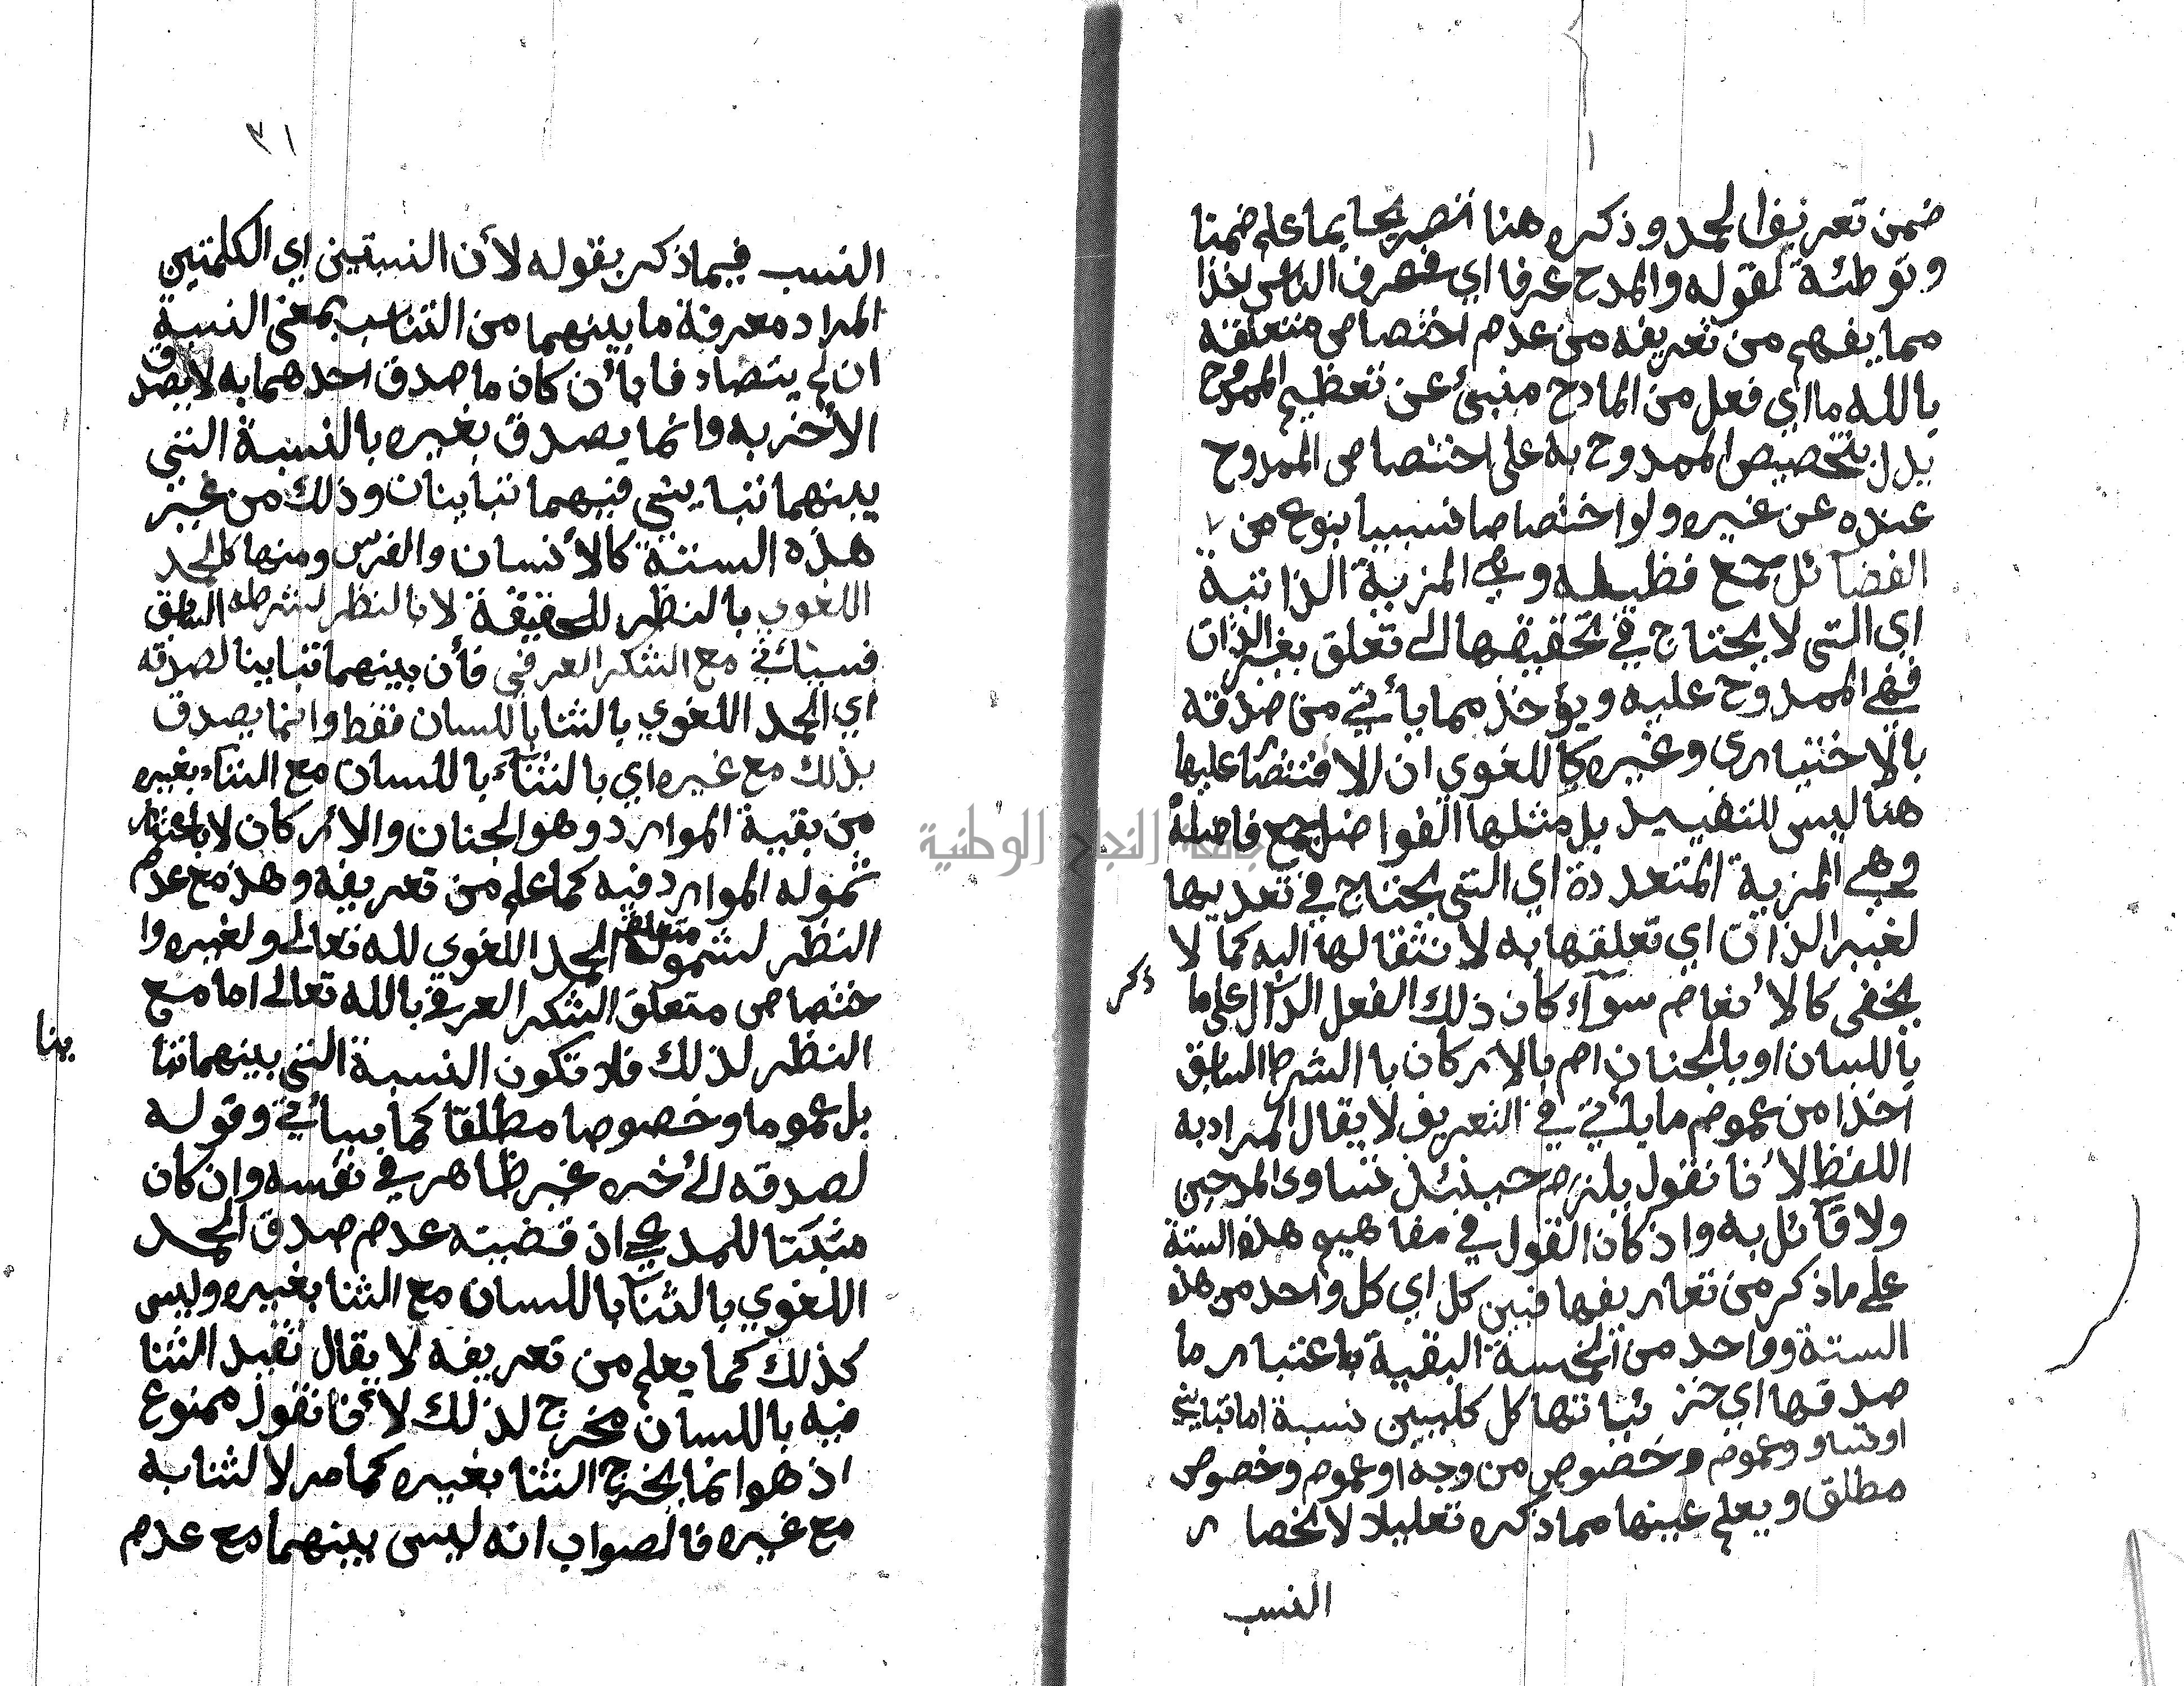 ضمن تعريف الحمد وذكره هنا تصريحا بما علم ضمنا
وتوطئة لقوله والمدح عرفا اي في عرف الناس اخذا
مما يفهم من تعريفه من عدم اختصاص متعلقه
بالله ما اي فعل من المادح منبئ عن تعظيم الممدوح
يدل بتخصيص الممدوح به على اختصاص الممدوح
عنده عن غيره ولو اختصاصا نسبيا بنوع من
الفضآئل جمع فظيله وهي المزية الذاتية
اي التي لا يحتاج في تحقيقها الى تعلق بغير الذات
فهي الممدوح عليه ويؤخذ مما يأتي من صدقه
بالاختيارى وغيره كاللغوي ان الاقتصار عليها
هنا ليس للتقييد بل مثلها الفواضل جمع فاضلة
وهي المزية المتعددة اي التي يحتاج في تعديها
لغير الذات اي تعلقها به لا نتقالها اليه كما لا
يخفى كالأنعام سوآء كان ذلك الفعل الدآل على ما
ذكر
باللسان او بالجنان ام بالاركان با الشرط السابق
اخذا من عموم ما يأتي في التعريف لا يقال المراد به
اللفظ لأنا نقول يلزم حينئذ تساوى المدحين
ولا قآئل به واذ كان القول في مفاهيم هذه الستة
على ماذكر من تعاريفها فبين كل اي كل واحد من هذه
الستة وواحد من الخمسة البقية باعتبار ما
صدقها اي جز ئياتها كل كليين نسبة اما تباين
او تساو وعموم وخصوص من وجه او عموم وخصوص
مطلق ويعلم عينها مما ذكره تعليلا لانحصار
النسب
٣١
النسب فيما ذكر بقوله لأن النسبتين اي الكلمتين
المراد معرفة ما بينهما من التناسب بمعنى النسبة
ان لم يتصاد قا بأن كان ما صدق احدهما به لا يصدق
الأخر به وانما يصدق بغيره بالنسبة التي
بينهما تباين فيهما تباينان وذلك من غير
هذه الستة كالأنسان والفرس ومنها كالحمد
اللغوي بالنظر للحقيقة لا بالنظر لشرطه السابق
فسيأتي مع الشكر العرفي فأن بينهما تباينا لصدقه
اي الحمد اللغوي بالثنا باللسان فقط وانما يصدق
بذلك مع غيره اي بالثنآء باللسان مع الثناء بغيره
من بقية الموارد وهو الجنان والاركان لا باعتبار
شموله الموارد فيه كما علم من تعريفه وهذ مع عدم
النظر لشمول متعلق الحمد اللغوي لله تعالى ولغيره وا
ختصاص متعلق الشكر العرفي بالله تعالى اما مع
النظر لذلك فلا تكون النسبة التي بينهما تبا
ينا
بل عموما وخصوصا مطلقا كما سيأتي وقوله
لصدقه الى أخره غير ظاهر في نفسه وان كان
مثبتا للمدعي اذ قضيته عدم صدق الحمد
اللغوي بالثنآ باللسان مع الثنا بغيره وليس
كذلك كما يعلم من تعريفه لا يقال تقيد الثنا
فيه باللسان مخرج لذلك لأنا نقول ممنوع
اذ هو انما يخرج الثنا بغيره كما مر لا لثنا به
مع غيره فالصواب انه ليس بينهما مع عدم
جامعة النجاح الوطنية